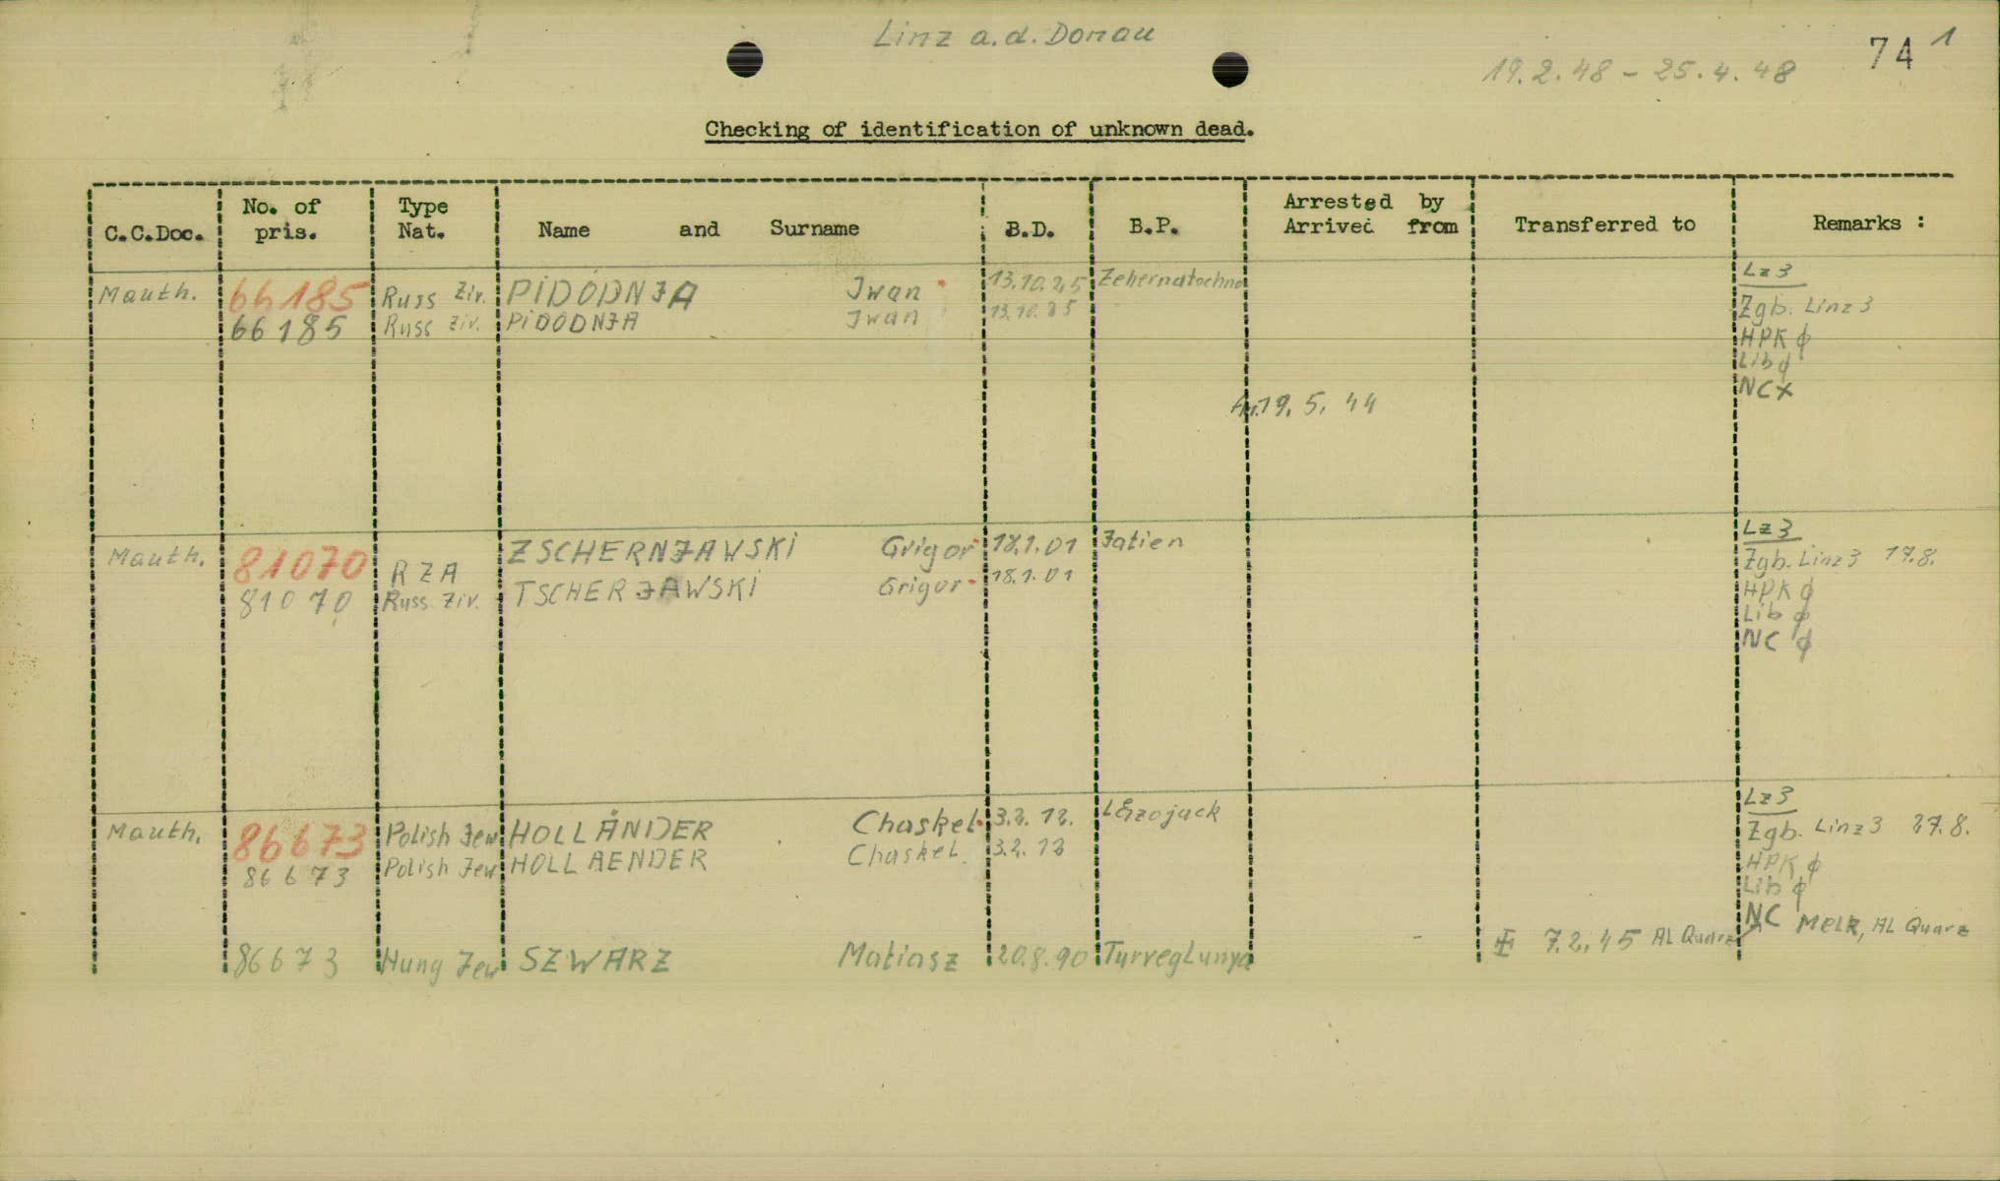 Linz a.d. Donau
74 1
19.2.48 - 25.4.48
Checking of identification of unknown dead.
C.C.Doc. No. of pris. Type Nat. Name and Surname B.D. B.P. Arrested by Arrived from Transferred to Remarks :
Mauth. 66185 Russ Ziv. PIDODNJA Jwan 13.10.25 Lz3
66185 Russ Ziv. PIDODNJA Jwan 13.10.25 Zgb. Linz 3
HPK ϕ
Lib ϕ
NC x
Ar. 19. 5. 44
Mauth. 81070 RZA ZSCHERNJAWSKI Grigor 18.1.01 Jatien Lz3
81070 Russ Ziv. TSCHERJAWSKI Grigor 18.1.01 Zgb. Linz 3 17.8.
HPK ϕ
Lib ϕ
NC ϕ
Mauth. 86673 Polish Jew HOLLÄNDER Chaskel 3.2.12. Lz3
86673 Polish Jew HOLLAENDER Chaskel 3.2.12 Zgb. Linz 3 27.8.
HPK ϕ
Lib ϕ
NC Melk, AL Quarz
86673 Hung Jew SZWARZ Matiasz 20.8.90 7.2.45 AL Quarz